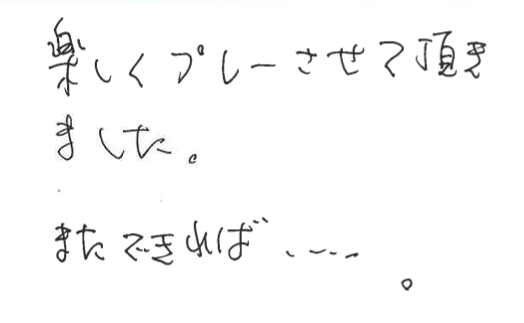 楽しくプレーさせて頂き
ました。
またできれば、----。